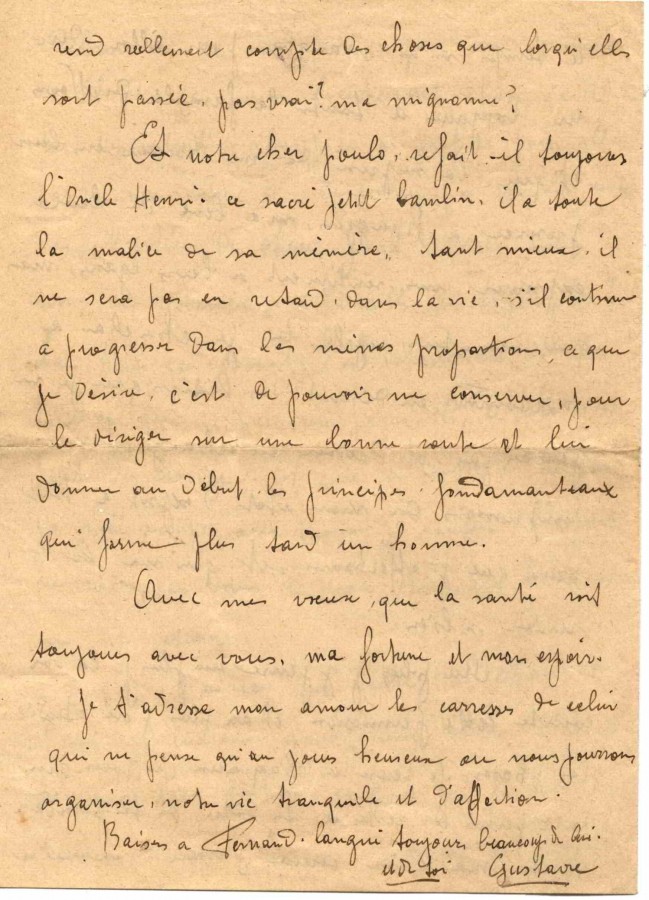 rend réellement compte des choses que lorsqu'elles
sont passée, pas vrai? ma mignonne?
Et notre cher poulo, refait-il toujours
l'Oncle Henri. ce sacré petit bambin. il a toute
la malice de sa mémère, tant mieux. il
ne sera pas en retard. dans la vie, s'il continu
a progresser dans les mêmes proportions, ce que
je désire, c'est de pouvoir me conserver, pour
le diriger sur une bonne route et lui
donner au début les principes fondamanteaux
qui forme plus tard un homme.
Avec mes vœux, que la santé soit
toujours avec vous, ma fortune et mon espoir.
Je t'adresse mon amour les carresses de celui
qui ne pense qu'au jours heureux ou nous pourrons
organiser, notre vie tranquile et d'affection.
Baises a Fernand. langui toujours beaucoup de lui.
et de toi Gustave